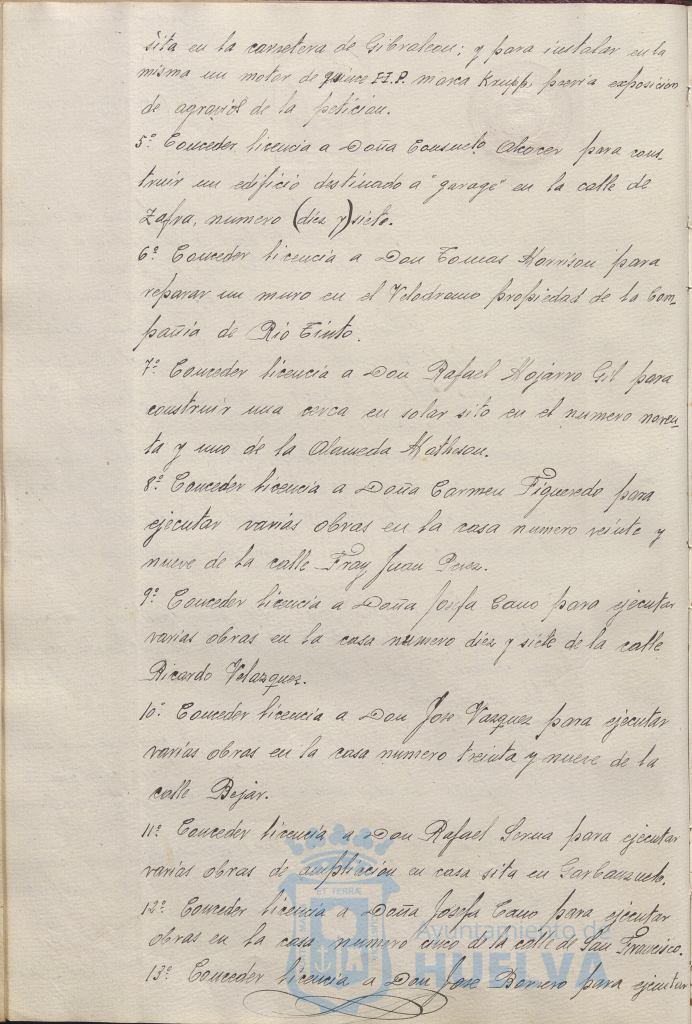 sita en la carretera de Gibraleon; y para instalar en la
misma un motor de quince H.P. marca Krupp, previa exposición
de agravios de la petición.
5º Conceder licencia a Doña Consuelo Alcocer para cons-
truir un edificio destinado a "garage" en la calle de
Zafra, numero (diez y) siete.
6º Conceder licencia a Don Tomas Morrison para
reparar un muro en el Velodromo propiedad de la Com-
pañia de Rio Tinto.
7º Conceder licencia a Don Rafael Mojarro Gil para
construir una cerca en solar sito en el numero noven-
ta y uno de la Alameda Matheson.
8º Conceder licencia a Doña Carmen Figueredo para
ejecutar varias obras en la casa numero veinte y
nueve de la calle Fray Juan Perez.
9º Conceder licencia a Doña Josefa Cano para ejecutar
varias obras en la casa numero diez y siete de la calle
Ricardo Velazquez.
10º Conceder licencia a Don Jose Vazquez para ejecutar
varias obras en la casa numero treinta y nueve de la
calle Bejar.
11º Conceder licencia a Don Rafael Serna para ejecutar
varias obras de ampliación en casa sita en Garbanzuelo.
12º Conceder licencia a Doña Josefa Cano para ejecutar
obras en la casa numero cinco de la calle de San Francisco.
13º Conceder licencia a Don Jose Borrero para ejecutar
ET TERRÆ
Ayuntamiento de
HUELVA